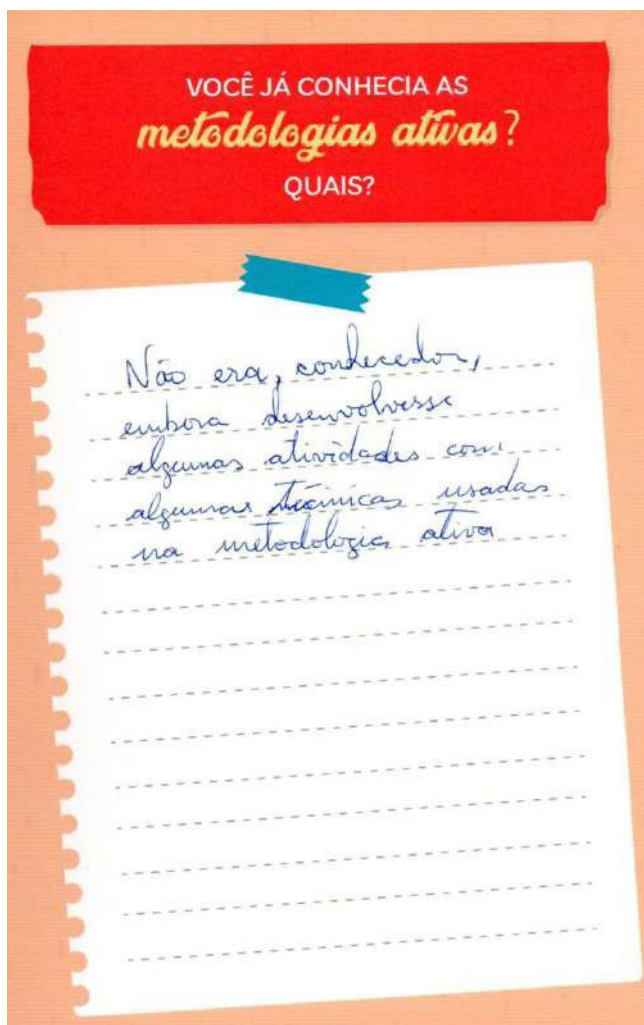 VOCÊ JÁ CONHECIA AS
metodologias ativas?
QUAIS?
Não era, conhecedor,
embora desenvolvesse
algumas atividades com
algumas técnicas usadas
na metodologia ativa